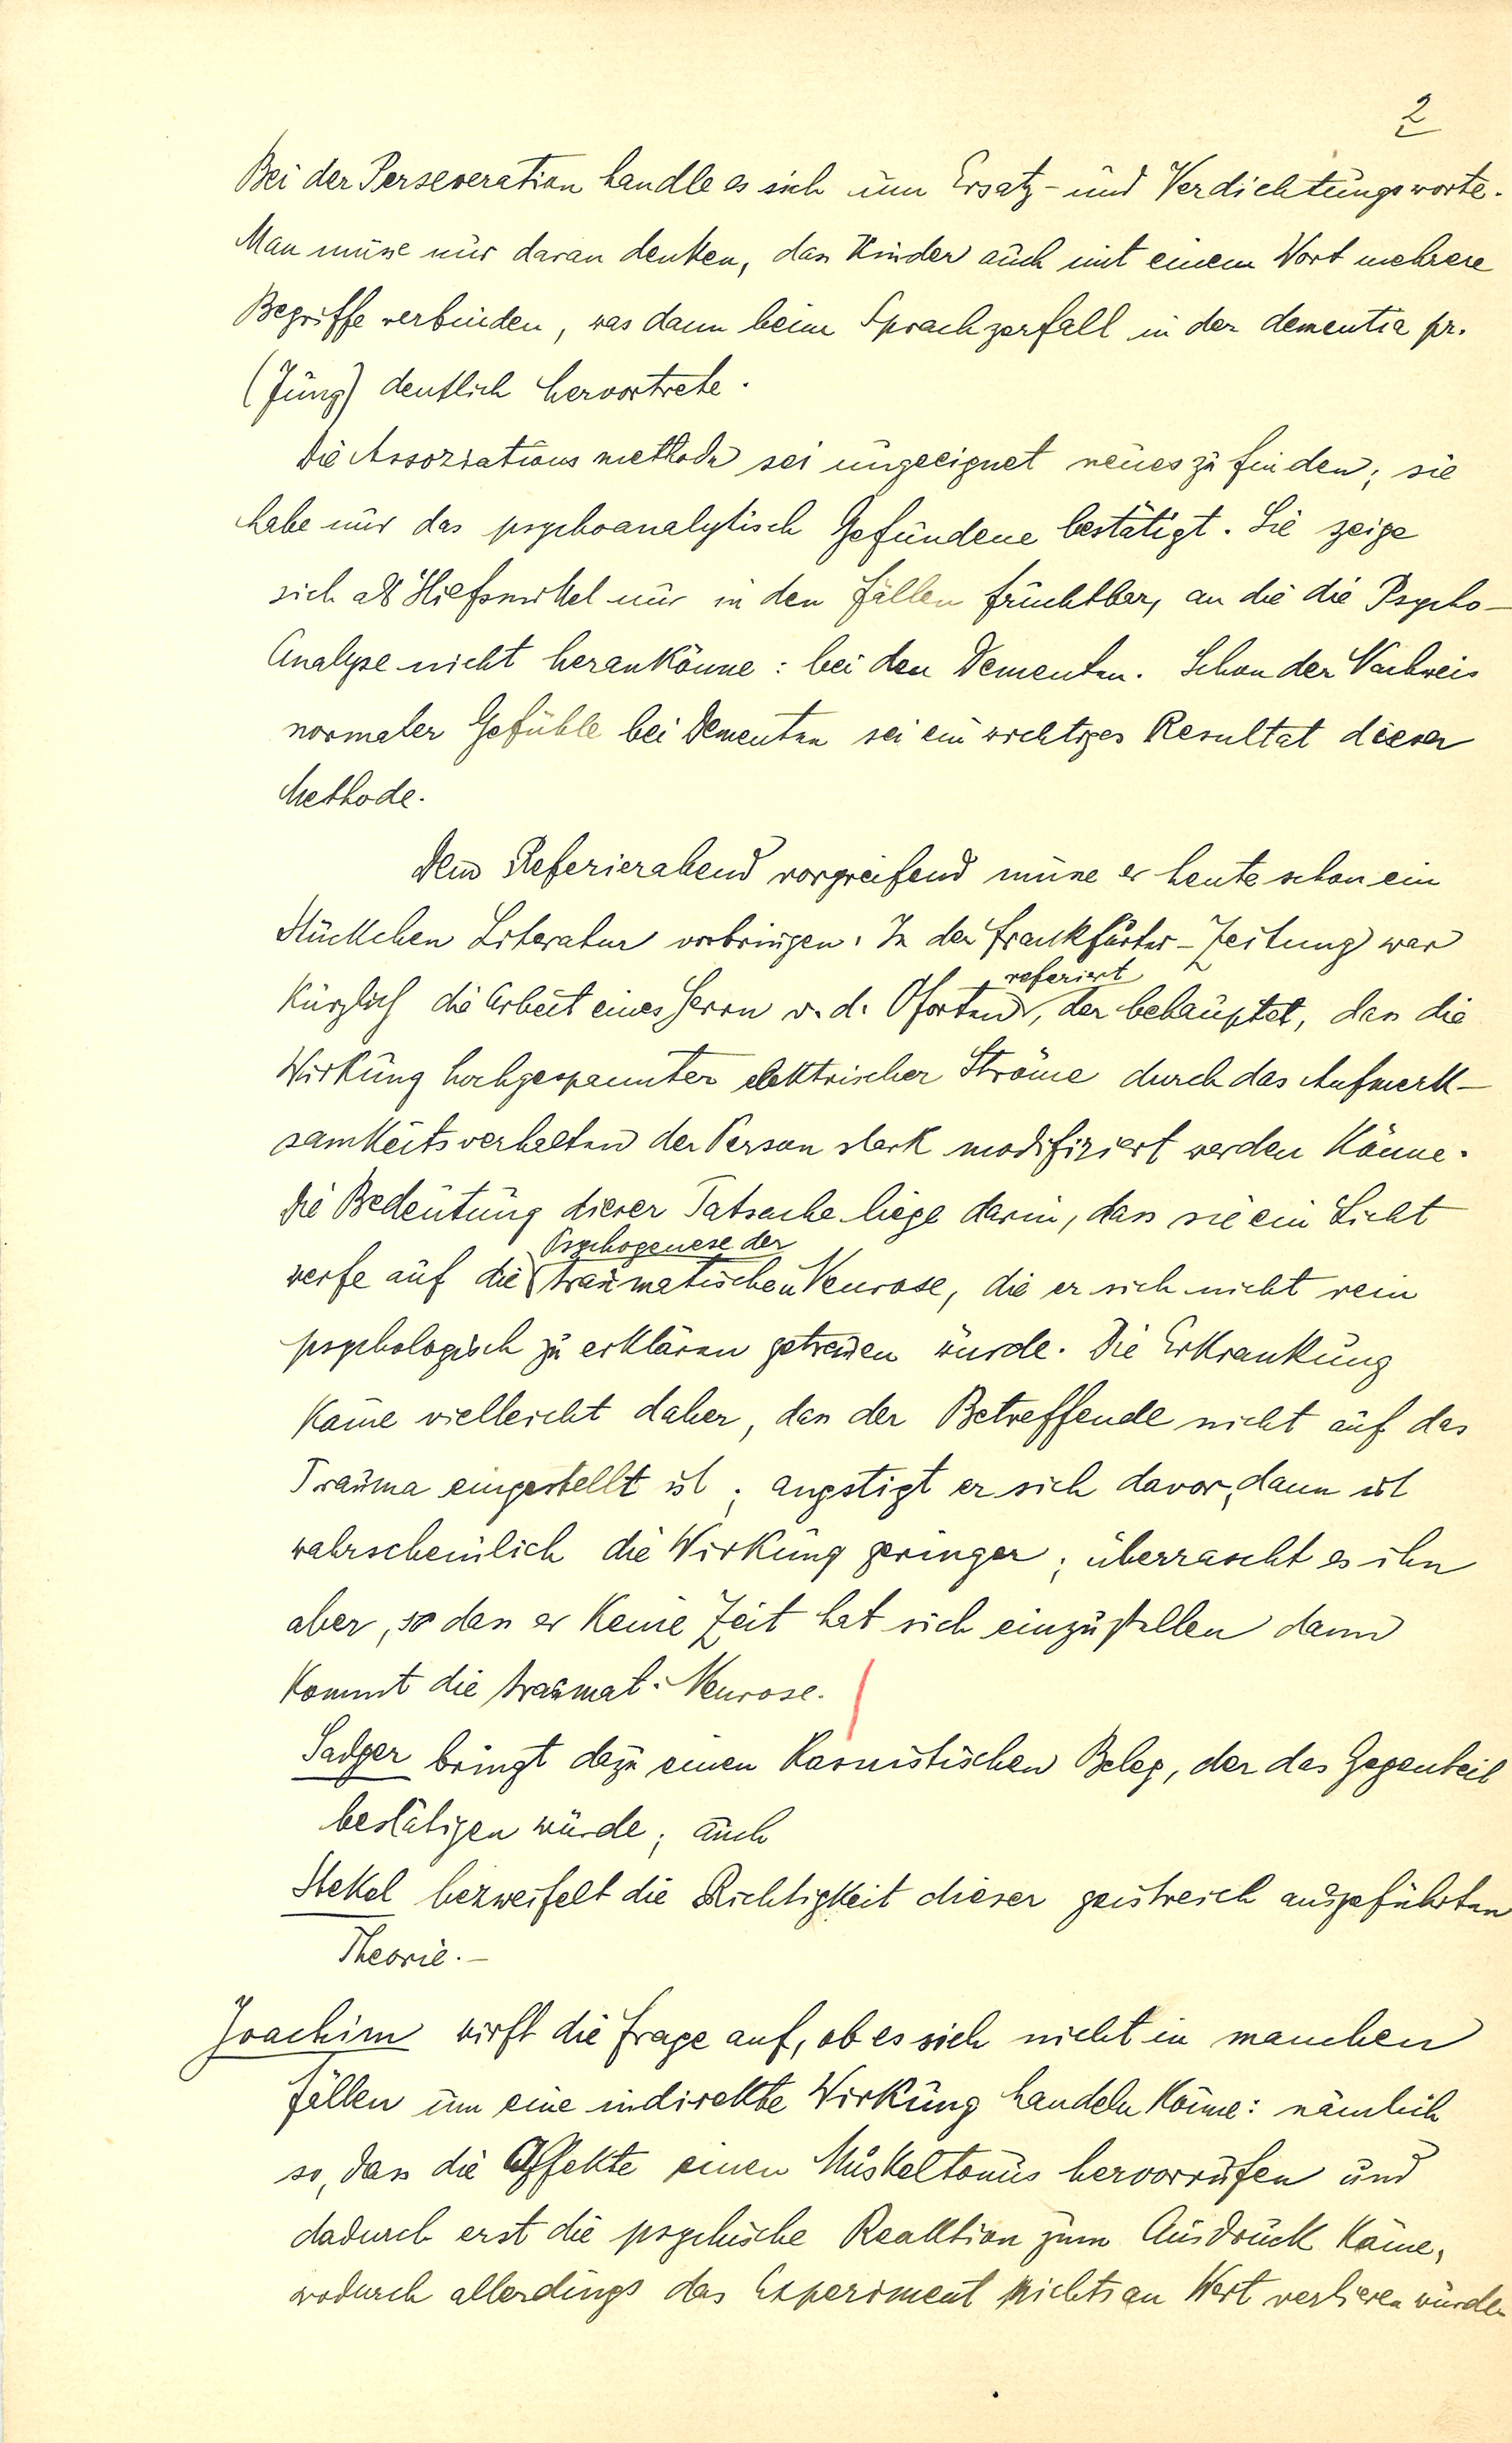 2
Bei der Perseveration handle es sich um Ersatz- und Verdichtungsworte.
Man müsse nur daran denken, dass Kinder auch mit einem Wort mehrere
Begriffe verbinden, was dann beim Sprachzerfall in der dementia pr.
(Jung) deutlich hervortrete.
Die Assoziationsmethode sei ungeeignet neues zu finden; sie
habe nur das psychoanalytisch Gefundene bestätigt. Sie zeige
sich als Hilfsmittel nur in den Fällen fruchtbar, an die die Psycho-
Analyse nicht herankönne: bei den Dementen. Schon der Nachweis
normaler Gefühle bei Dementen sei ein wichtiges Resultat dieser
Methode.
Dem Referierabend vorgreifend müsse er heute schon ein
Stückchen Literatur vorbringen. In der Frankfurter-Zeitung war
referiert
kürzlich die Arbeit eines Herrn v. d. Oforten, der behauptet, dass die
Wirkung hochgespannter elektrischer Ströme durch das Aufmerk-
samkeitsverhalten der Person stark modifiziert werden könne.
Die Bedeutung dieser Tatsache liege darin, dass sie ein Licht
Psychogenese der
werfe auf die traumatischen Neurose, die er sich nicht rein
psychologisch zu erklären getrauen würde. Die Erkrankung
käme vielleicht daher, dass der Betreffende nicht auf das
Trauma eingestellt ist; ängstigt er sich davor, dann ist
wahrscheinlich die Wirkung geringer; überrascht es ihn
aber, so dass er keine Zeit hat sich einzustellen dann
kommt die traumat. Neurose.
Sadger bringt dazu einen kasuistischen Beleg, der das Gegenteil
bestätigen würde; auch
Stekel bezweifelt die Richtigkeit dieser geistreich ausgeführten
Theorie.-
Joachim wirft die Frage auf, ob es sich nicht in manchen
Fällen um eine indirekte Wirkung handeln könne: nämlich
so, dass die Affekte einen Muskeltonus hervorrufen und
dadurch erst die psychische Reaktion zum Ausdruck käme,
wodurch allerdings das Experiment nichts an Wert verlieren würde